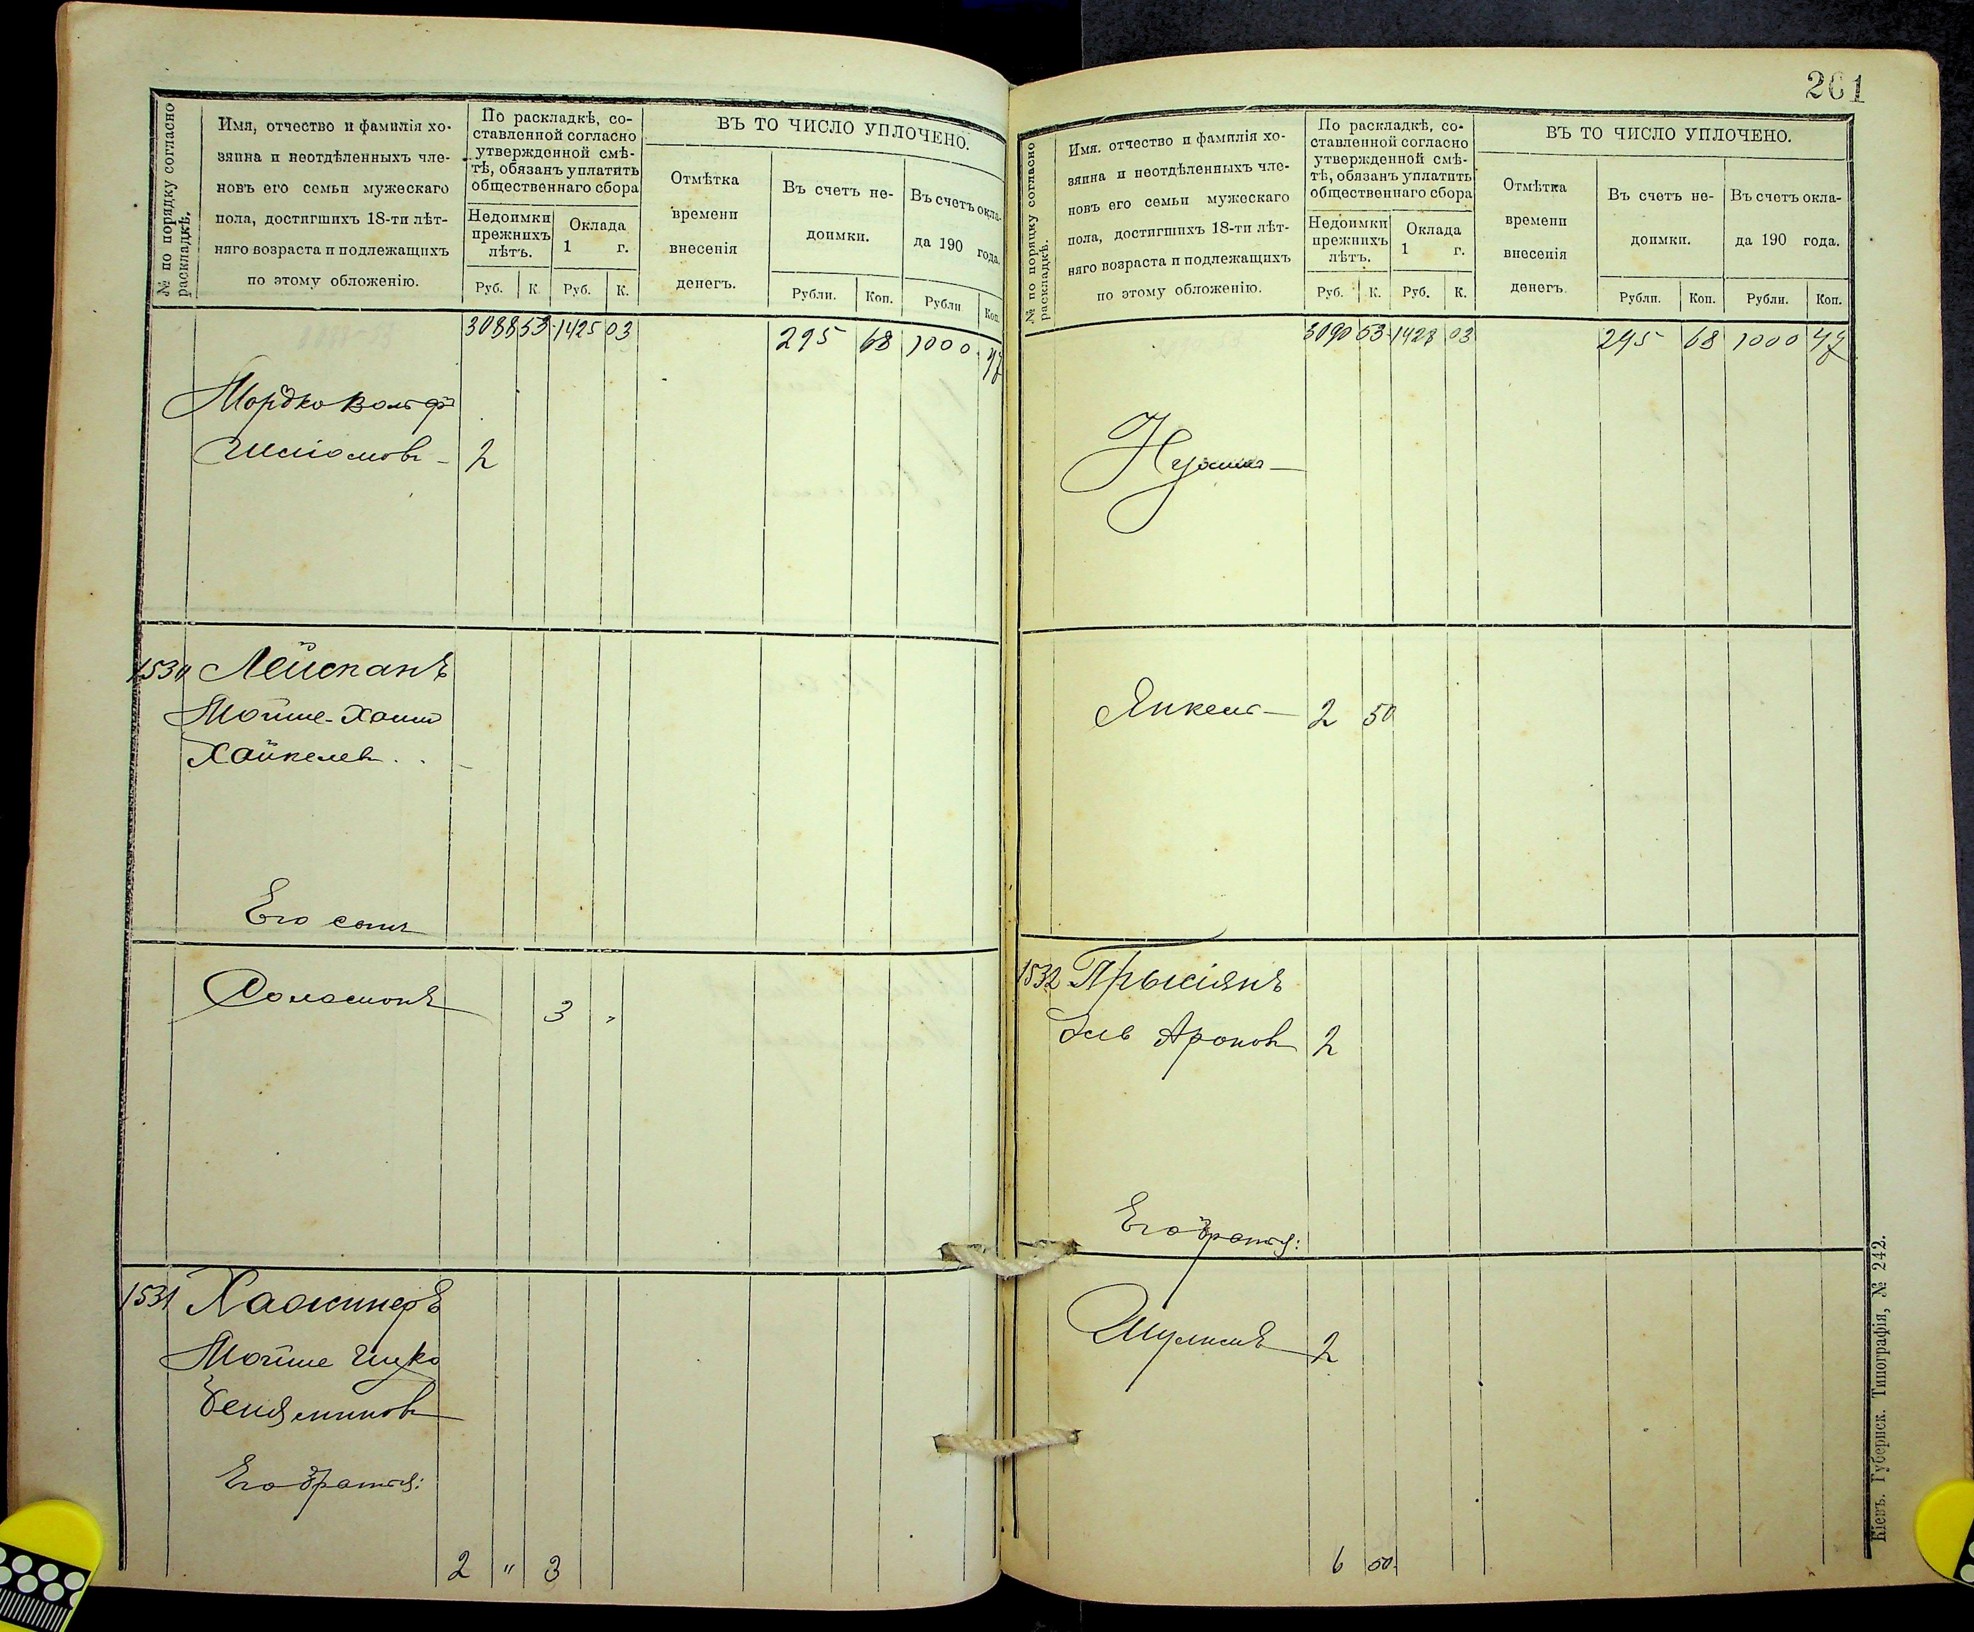 № по порядку согласно раскладкѣ.
Имя, отчество и фамилія хо-
зяина и неотдѣленныхъ чле-
новъ его семьи мужескаго
пола, достигшихъ 18-ти лѣт-
няго возраста и подлежащихъ
по этому обложенію.
По раскладкѣ, со-
ставленной согласно
утвержденной смѣ-
тѣ, обязанъ уплатить
общественнаго сбора
Недоимки
прежнихъ
лѣтъ.
Оклада
1 г.
Руб. К. Руб. К.
ВЪ ТО ЧИСЛО УПЛОЧЕНО.
Отмѣтка
времени
внесенія
денегъ.
Въ счетъ не-
доимки.
Въ счетъ окла-
да 190 года.
Рубли. Коп. Рубли Коп.
3088 53 1425 03 295 68 1000 47
Мордко Вольфъ
2
1530 Лейспанъ
Мойше-Хаим
Хайкелев
Его сын
Соломонъ 3 "
1531
Мойше Ицко
Беняминов
Его братья:
2 " 3
261
№ по порядку согласно раскладкѣ.
Имя. отчество и фамилія хо-
зяина и неотдѣленныхъ чле-
новъ его семьи мужескаго
пола, достигшихъ 18-ти лѣт-
няго возраста и подлежащихъ
по этому обложенію.
По раскладкѣ, со-
ставленной согласно
утвержденной смѣ-
тѣ, обязанъ уплатить
общественнаго сбора
Недоимки
прежнихъ
лѣтъ.
Оклада
1 г.
Руб. К. Руб. К.
ВЪ ТО ЧИСЛО УПЛОЧЕНО.
Отмѣтка
времени
внесенія
денегъ.
Въ счетъ не-
доимки.
Въ счетъ окла-
да 190 года.
Рубли. Коп. Рубли. Коп.
3090 53 1428 03 295 68 1000 47
Янкель 2 50
1532
Аронов 2
Его братья:
Шулимъ 2
6 50
Кіевъ. Губернск. Типографія, № 242.